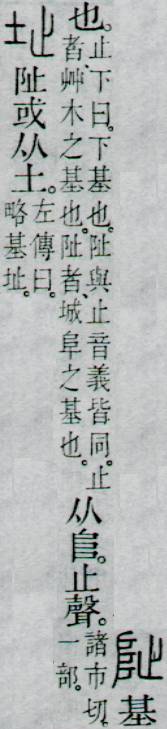 阯基
也。
止下曰。下基也。阯與止音義皆同。止
者艸木之基也。阯者、城阜之基也。
从𨸏。止聲。
諸市切。
一部。
址
阯或从土。
左傳曰。
略基址。